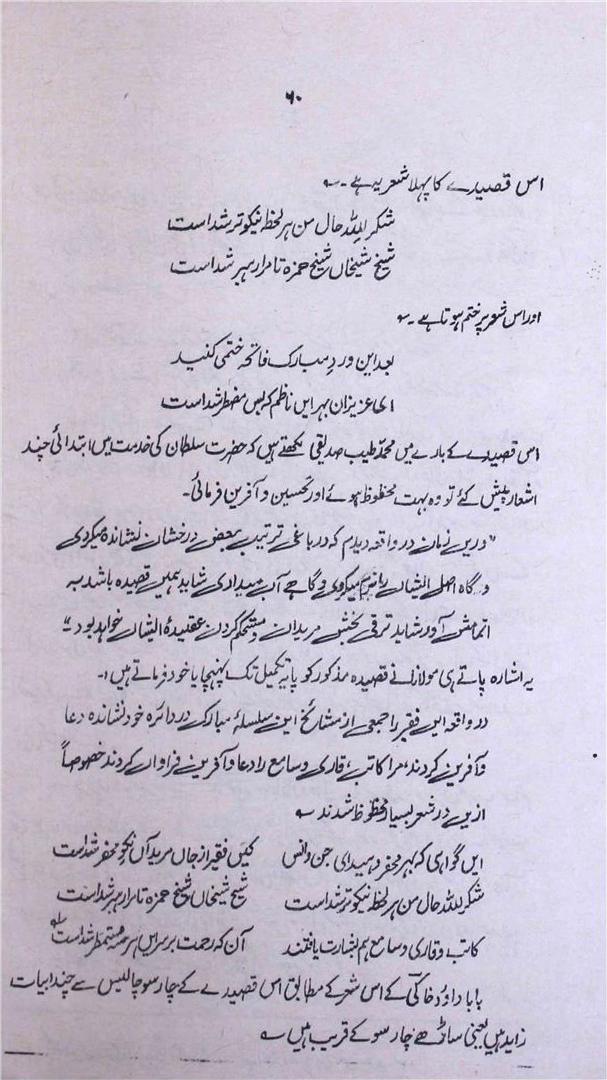 ۶۰
اس قصیدے کا پہلا شعر یہ ہے ۔ ؎
شکر للہ حال من ہر لحظہ نیکو تر شد است
شیخ شیخاں شیخ حمزہ تا مرا رہبر شد است
اور اس شعر پر ختم ہوتا ہے ۔ ؎
بعد این وردِ مبارک فاتحہ ختمی کنید
ای عزیزان بہر ایں ناظم کہ بس مضطر شد است
اس قصیدے کے بارے میں محمد طیب صدیقی لکھتے ہیں کہ حضرت سلطان کی خدمت میں ابتدائی چند
اشعار پیش کئے تو وہ بہت محظوظ ہوئے اور تحسین و آفرین فرمائی۔
"دریں زمان در واقعہ دیدم کہ در باغی ترتیب بعضی درخشان نشاندہ میکردی
و گاہ اصل ایشاں میکردی و گاہے آب میدادی شاید ہمیں قصیدہ باشد بہ
اتمامش آور شاید ترقی بخش مریدان و مستحکم کردن عقیدۂ ایشاں خواہد بود۔"
یہ اشارہ پاتے ہی مولانا نے قصیدہ مذکور کو پایہ تکمیل تک پہنچایا خود فرماتے ہیں :۔
در واقعہ این فقیر را جمعی از مشائخ این سلسلۂ مبارک در دائرہ خود نشاندہ دعا
و آفرین کردند، مرا کاتب، قاری و سامع را دعا و آفرینے فراواں کردند خصوصاً
ازین در شعر بسیار محظوظ شدند ؎
ایں گواہی کہ بہر محضر دہید ای جن و انس کیں فقیر از جاں مرید آں نکو محضر شد است
شکر للہ حال من ہر لحظہ نیکو تر شد است شیخ شیخاں شیخ حمزہ تا مرا رہبر شد است
کاتب و قاری و سامع ہم بشارت یافتند آن کہ رحمت بر سر ایں ہر سہ مستمطر شد است
بابا داود خاکی کے اس شعر کے مطابق اس قصیدے کے چار سو چالیس سے چند ابیات
زاید ہیں یعنی ساڑھے چار سو کے قریب ہیں ؎